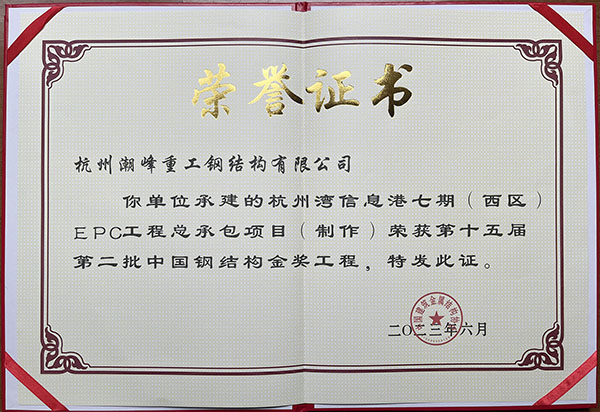 荣誉证书
杭州潮峰重工钢结构有限公司
你单位承建的杭州湾信息港七期（西区）
EPC工程总承包项目（制作）荣获第十五届
第二批中国钢结构金奖工程，特发此证。
中国建筑金属结构协会
二〇二三年六月